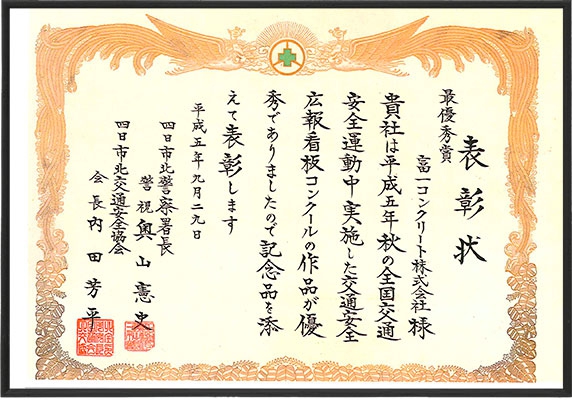 表彰状
最優秀賞
富一コンクリート株式会社 様
貴社は平成五年秋の全国交通
安全運動中実施した交通安全
広報看板コンクールの作品が優
秀でありましたので記念品を添
えて表彰します
平成五年九月二九日
四日市北警察署長
警視 奥山憲史
四日市北交通安全協会
会長 内田芳平